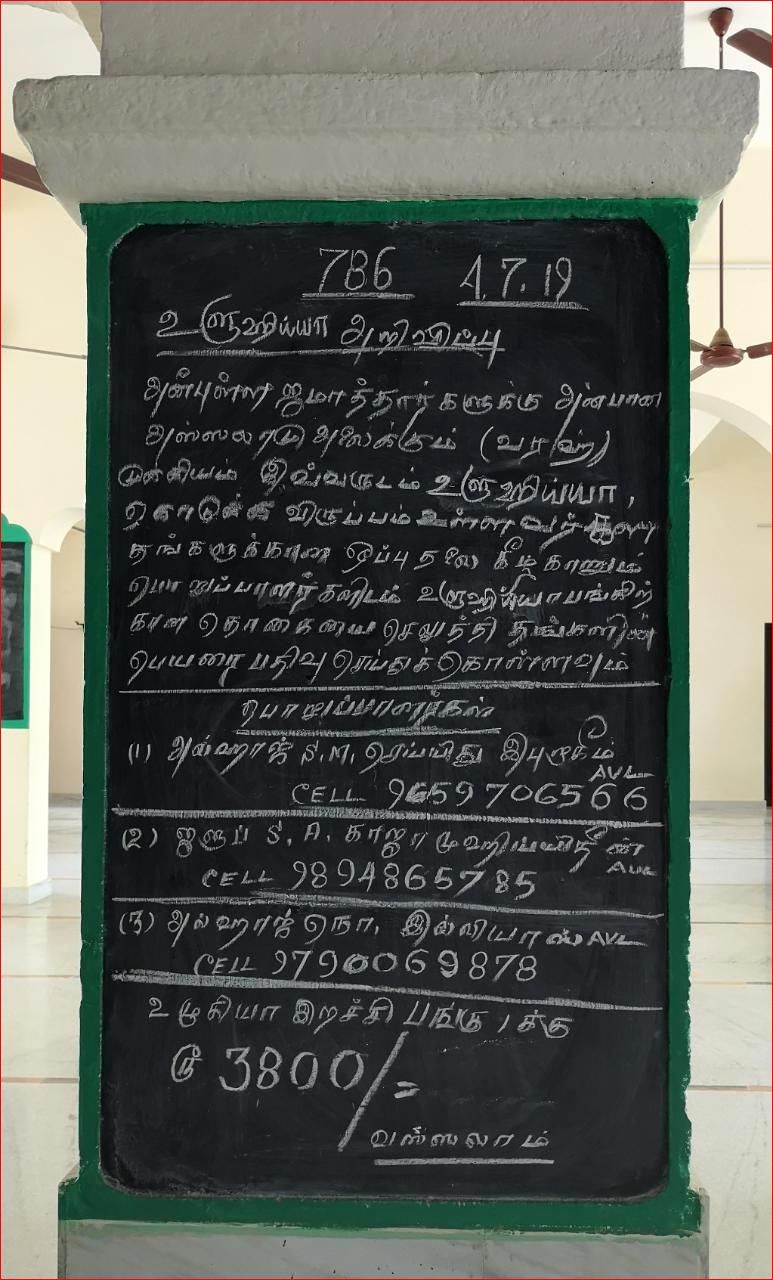 786 4.7.19
உளுஹிய்யா அறிவிப்பு
அன்புள்ள ஜமாத்தார்களுக்கு அன்பான
அஸ்ஸலாமு அலைக்கும் (வரஹ்)
முக்கியம் இவ்வருடம் உளுஹிய்யா,
கொடுக்க விருப்பம் உள்ளவர்கள்
தங்களுக்கான ஒப்புதலை கீழ்காணும்
பொறுப்பாளர்களிடம் உளுஹிய்யா பங்கிற்
கான தொகையை செலுத்தி தங்களின்
பெயரை பதிவு செய்துக் கொள்ளவும்
பொறுப்பாளர்கள்
(1) அல்ஹாஜ் S.M. செய்யிது இபுறாகீம் AVL
CELL 9659706566
(2) ஜனாப் S.A. காஜா முஹிய்யிதீன் AVL
CELL 9894865785
(3) அல்ஹாஜ் நெநா. இல்லியாஸ் AVL
CELL 9790069878
உழுகியா இறச்சி பங்கு 1க்கு
ரூ 3800/=
வஸ்ஸலாம்